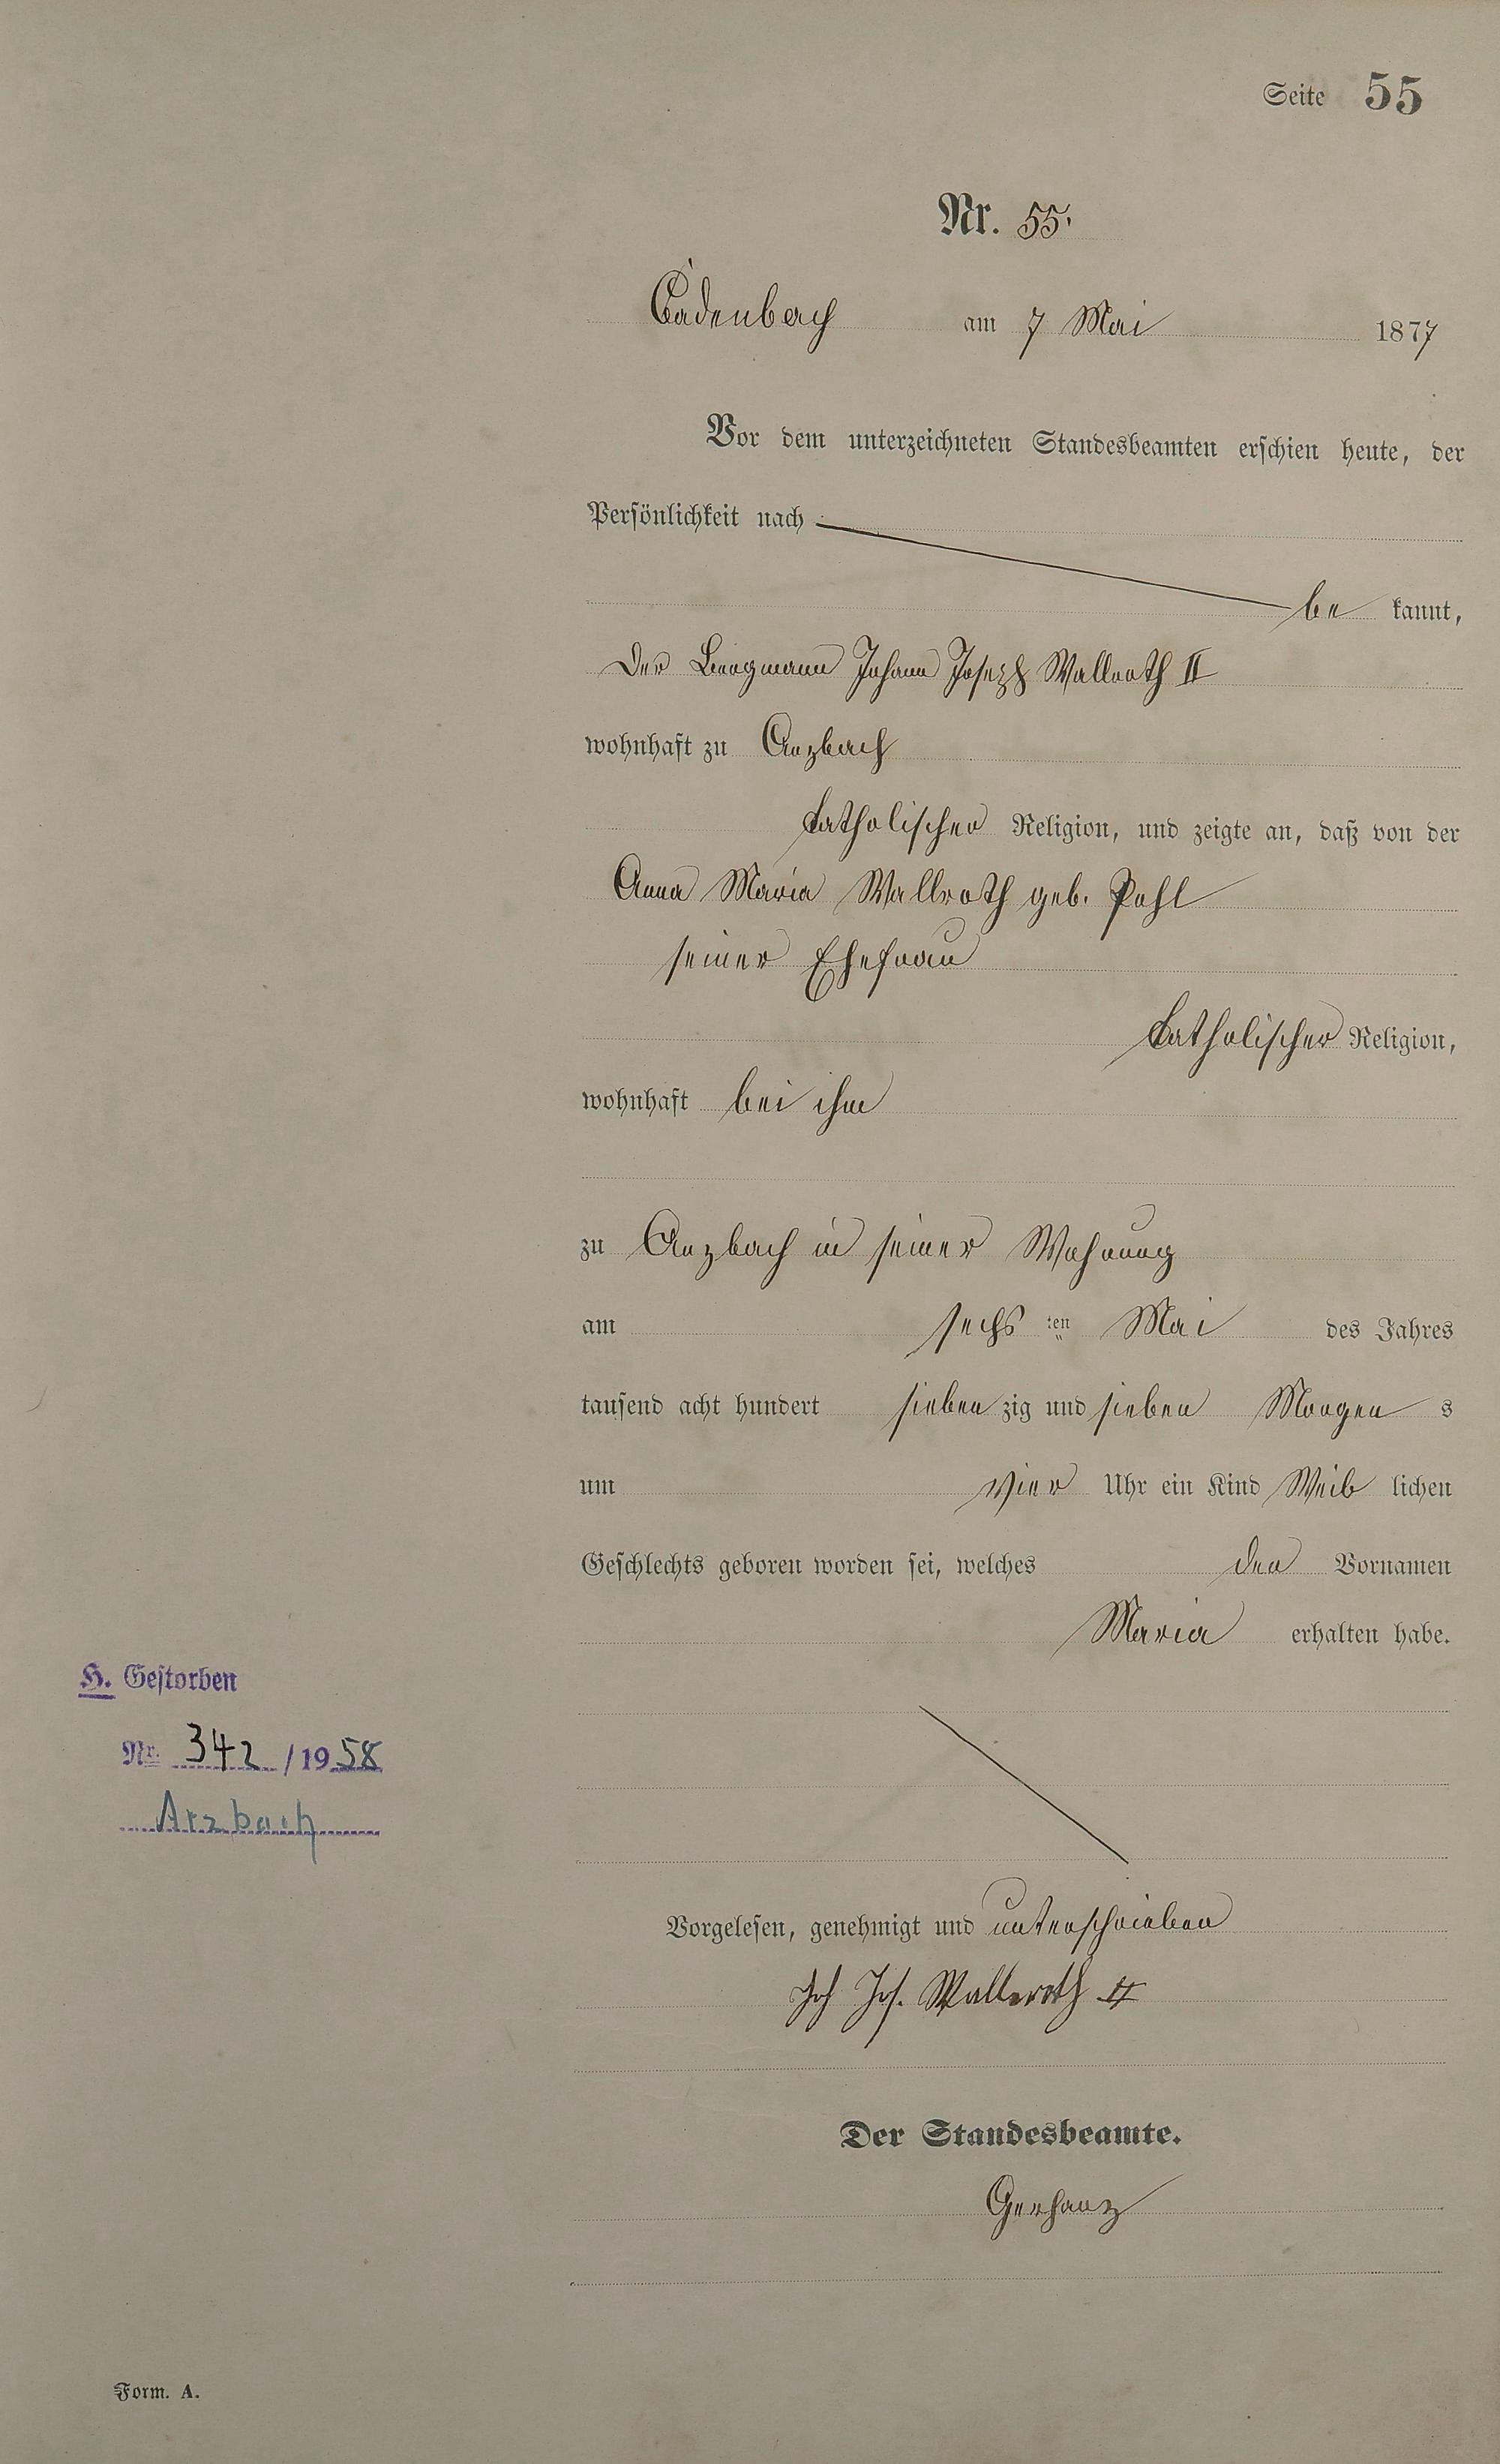 Seite 55
Nr. 55.
Cadenbach am 7 Mai 1877
Vor dem unterzeichneten Standesbeamten erschien heute, der
Persönlichkeit nach
be kannt,
der Bergmann Johann Joseph Wallroth II
wohnhaft zu Arzbach
katholischer Religion, und zeigte an, daß von der
Anna Maria Wallroth geb. Pohl
seiner Ehefrau
katholischer Religion,
wohnhaft bei ihm
zu Arzbach in seiner Wohnung
am sechs ten Mai des Jahres
tausend acht hundert sieben zig und sieben Morgen s
um vier Uhr ein Kind Weib lichen
Geschlechts geboren worden sei, welches den Vornamen
Maria erhalten habe.
H. Gestorben
Nr. 342 / 1958
Arzbach
Vorgelesen, genehmigt und unterschrieben
Joh Jos. Wallroth II
Der Standesbeamte.
Gerhanz
Form. A.